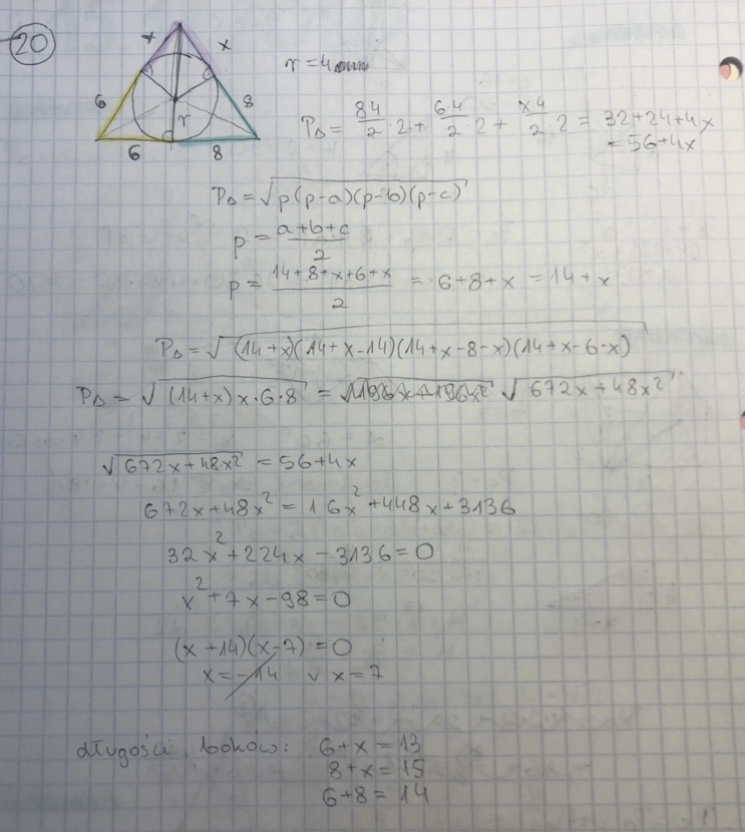 20
x x
6 8
r
6 8
r = 4
P△ = 8·4/2 · 2 + 6·4/2 · 2 + x·4/2 · 2 = 32+24+4x
= 56+4x
P△ = √p(p-a)(p-b)(p-c)
p = a+b+c/2
p = 14+8+x+6+x/2 = 6+8+x = 14+x
P△ = √(14+x)(14+x-14)(14+x-8-x)(14+x-6-x)
P△ = √(14+x)x·6·8 = √672x+48x²
√672x+48x² = 56+4x
672x+48x² = 16x²+448x+3136
32x²+224x-3136=0
x²+7x-98=0
(x+14)(x-7)=0
x=-14 ∨ x=7
długości boków: 6+x=13
8+x=15
6+8=14